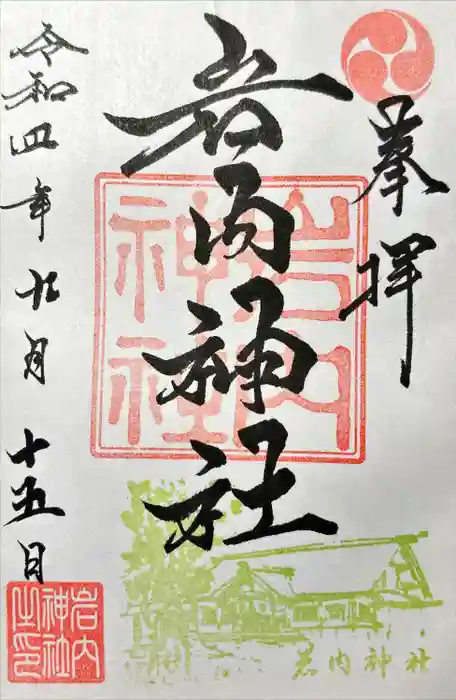 奉拝
岩内神社
岩内
神社
令和四年九月十五日
岩内
神社
之印
岩内神社